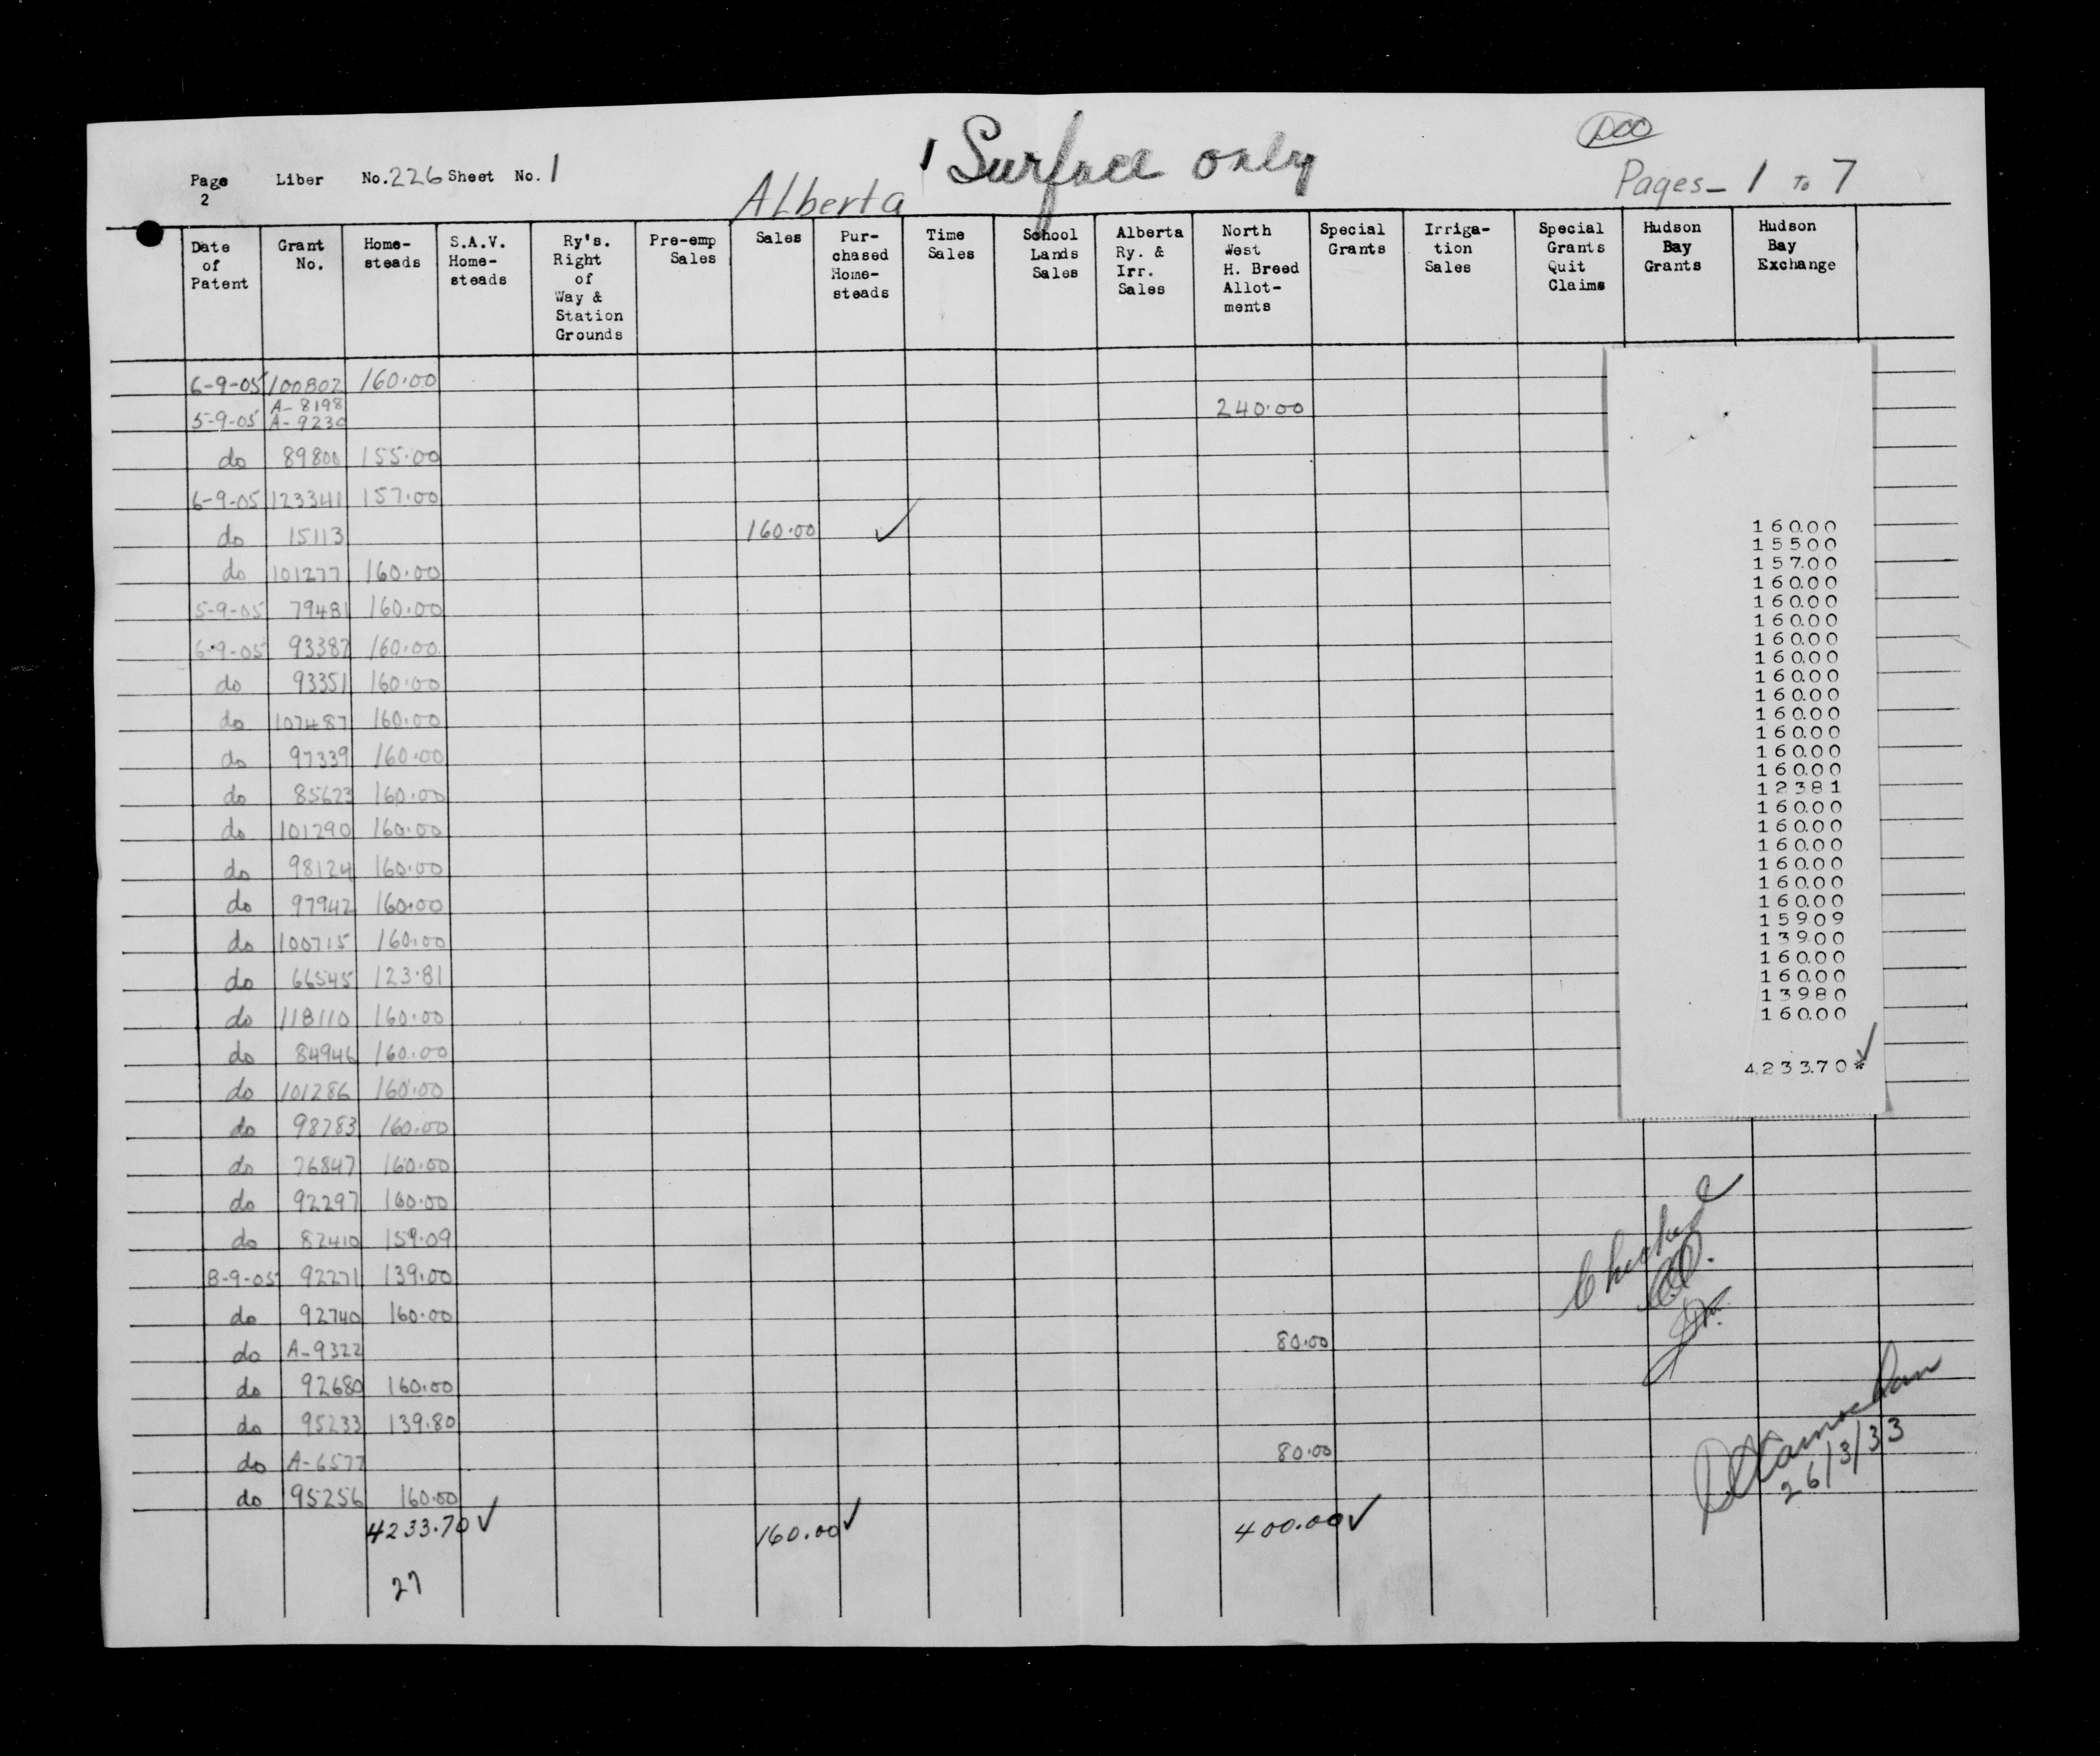 Surface only
Page Liber No. 226 Sheet No. 1
2
Alberta
Pages - 1 To 7
Date of Patent
Grant No.
Home-steads
S.A.V. Home-steads
Ry's. Right of Way & Station Grounds
Pre-emp Sales
Sales
Pur-chased Home-steads
Time Sales
School Lands Sales
Alberta Ry. & Irr. Sales
North West H. Breed Allot-ments
Special Grants
Irriga-tion Sales
Special Grants Quit Claims
Hudson Bay Grants
Hudson Bay Exchange
6-9-05 100802 160.00
A-8198
5-9-05 A-9230 240.00
do 89800 155.00
6-9-05 123341 157.00
do 15113 160.00 ✓
do 101277 160.00
5-9-05 79481 160.00
6-9-05 93387 160.00
do 93351 160.00
do 107487 160.00
do 97339 160.00
do 85623 160.00
do 101290 160.00
do 98124 160.00
do 97942 160.00
do 100715 160.00
do 66545 123.81
do 118110 160.00
do 84946 160.00
do 101286 160.00
do 98783 160.00
do 76847 160.00
do 92297 160.00
do 82410 159.09
8-9-05 92271 139.00
do 92740 160.00
do A-9322 80.00
do 92680 160.00
do 95233 139.80
do A-6577 80.00
do 95256 160.00
4233.70 ✓ 160.00 ✓ 400.00 ✓
27
160.00
155.00
157.00
160.00
160.00
160.00
160.00
160.00
160.00
160.00
160.00
160.00
160.00
160.00
123.81
160.00
160.00
160.00
160.00
160.00
160.00
159.09
139.00
160.00
160.00
139.80
160.00
4,233.70 * ✓
Checked
26/3/33